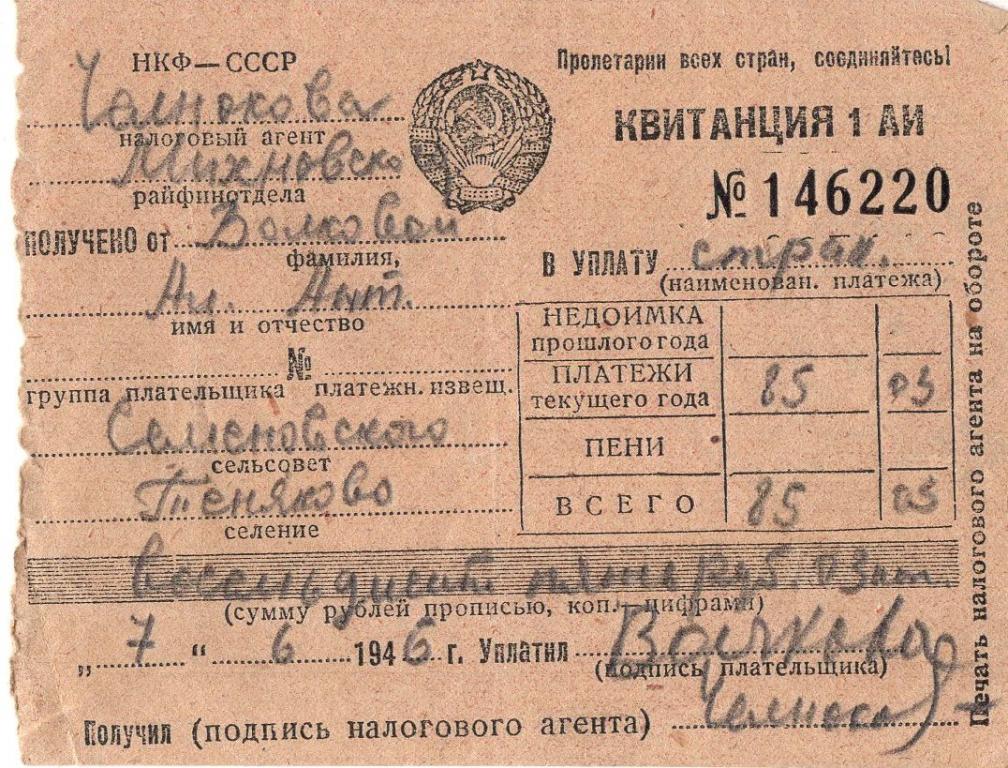 НКФ—СССР
Пролетарии всех стран, соединяйтесь!
КВИТАНЦИЯ 1 АИ
№ 146220
налоговый агент
Михновско
райфинотдела
ПОЛУЧЕНО от Волковой
фамилия,
Ал. Ант.
имя и отчество
В УПЛАТУ страх.
(наименован. платежа)
№
группа плательщика платежн. извещ.
Семеновского
сельсовет
Теняково
селение
НЕДОИМКА
прошлого года
ПЛАТЕЖИ
текущего года 85 03
ПЕНИ
ВСЕГО 85 03
восемьдесят пять руб. 03 коп.
(сумму рублей прописью, коп. цифрами)
„ 7 “ 6 1946 г. Уплатил Волкова
(подпись плательщика)
Получил (подпись налогового агента)
Печать налогового агента на обороте